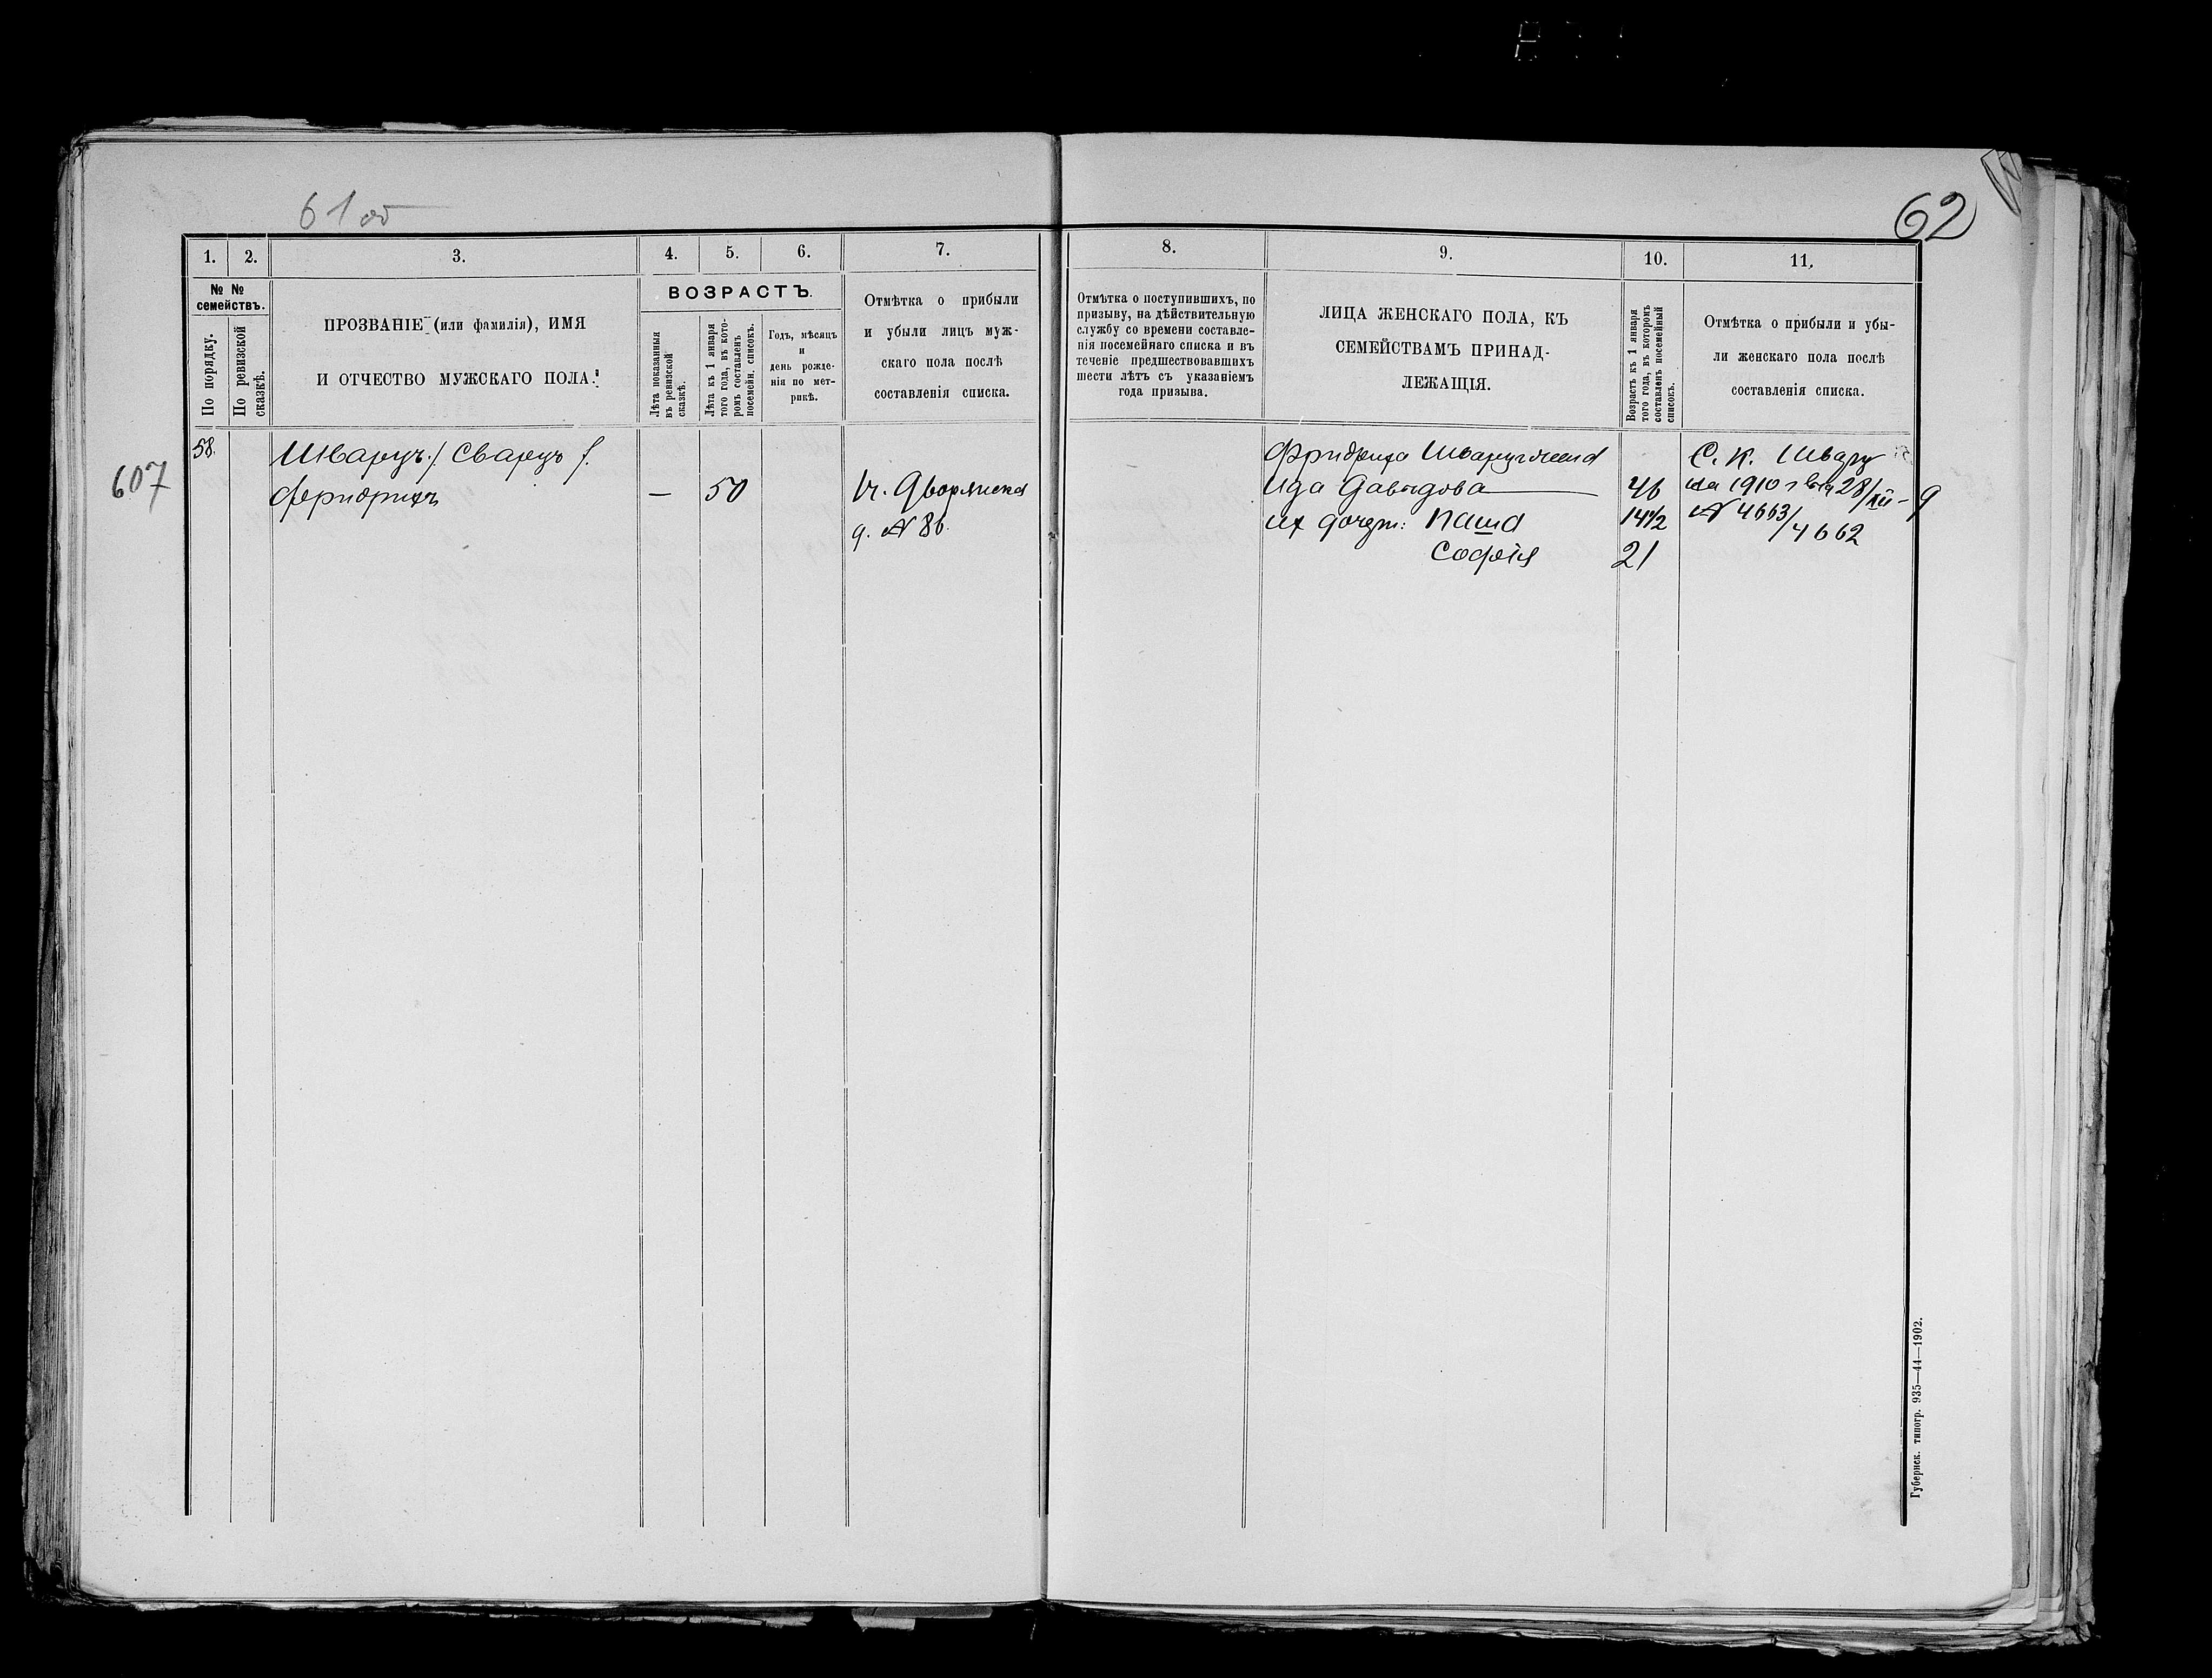 61 об
62
1.
2.
3.
4.
5.
6.
7.
8.
9.
10.
11.
№ №
семействъ.
По порядку.
По ревизской
сказкѣ.
ПРОЗВАНІЕ (или фамилія), ИМЯ
И ОТЧЕСТВО МУЖСКАГО ПОЛА.
ВОЗРАСТЪ.
Лѣта показанныя
въ ревизской
сказкѣ.
Лѣта къ 1 января
того года, въ кото-
ромъ составленъ
посемейн. списокъ.
Годъ, мѣсяцъ
и
день рожде-
нія по мет-
рикѣ.
Отмѣтка о прибыли
и убыли лицъ муж-
скаго пола послѣ
составленія списка.
Отмѣтка о поступившихъ, по
призыву, на дѣйствительную
службу со времени составле-
нія посемейнаго списка и въ
теченіе предшествовавшихъ
шести лѣтъ съ указаніемъ
года призыва.
ЛИЦА ЖЕНСКАГО ПОЛА, КЪ
СЕМЕЙСТВАМЪ ПРИНАД-
ЛЕЖАЩІЯ.
Возрастъ къ 1 января
того года, въ которомъ
составленъ посемейный
списокъ.
Отмѣтка о прибыли и убы-
ли женскаго пола послѣ
составленія списка.
607
58.
Шварцъ / Сварцъ /.
Фридрихъ
—
50
Дворянская
д. № 86.
Фридриха Шварца жена
Ида Давыдова — 46
их дочери: Паша 14 1/2
Софія 21
С. К. Шварц
на 1910 г 28/XII - 9
№ 4663/4662
Губернск. типогр. 935—44—1902.